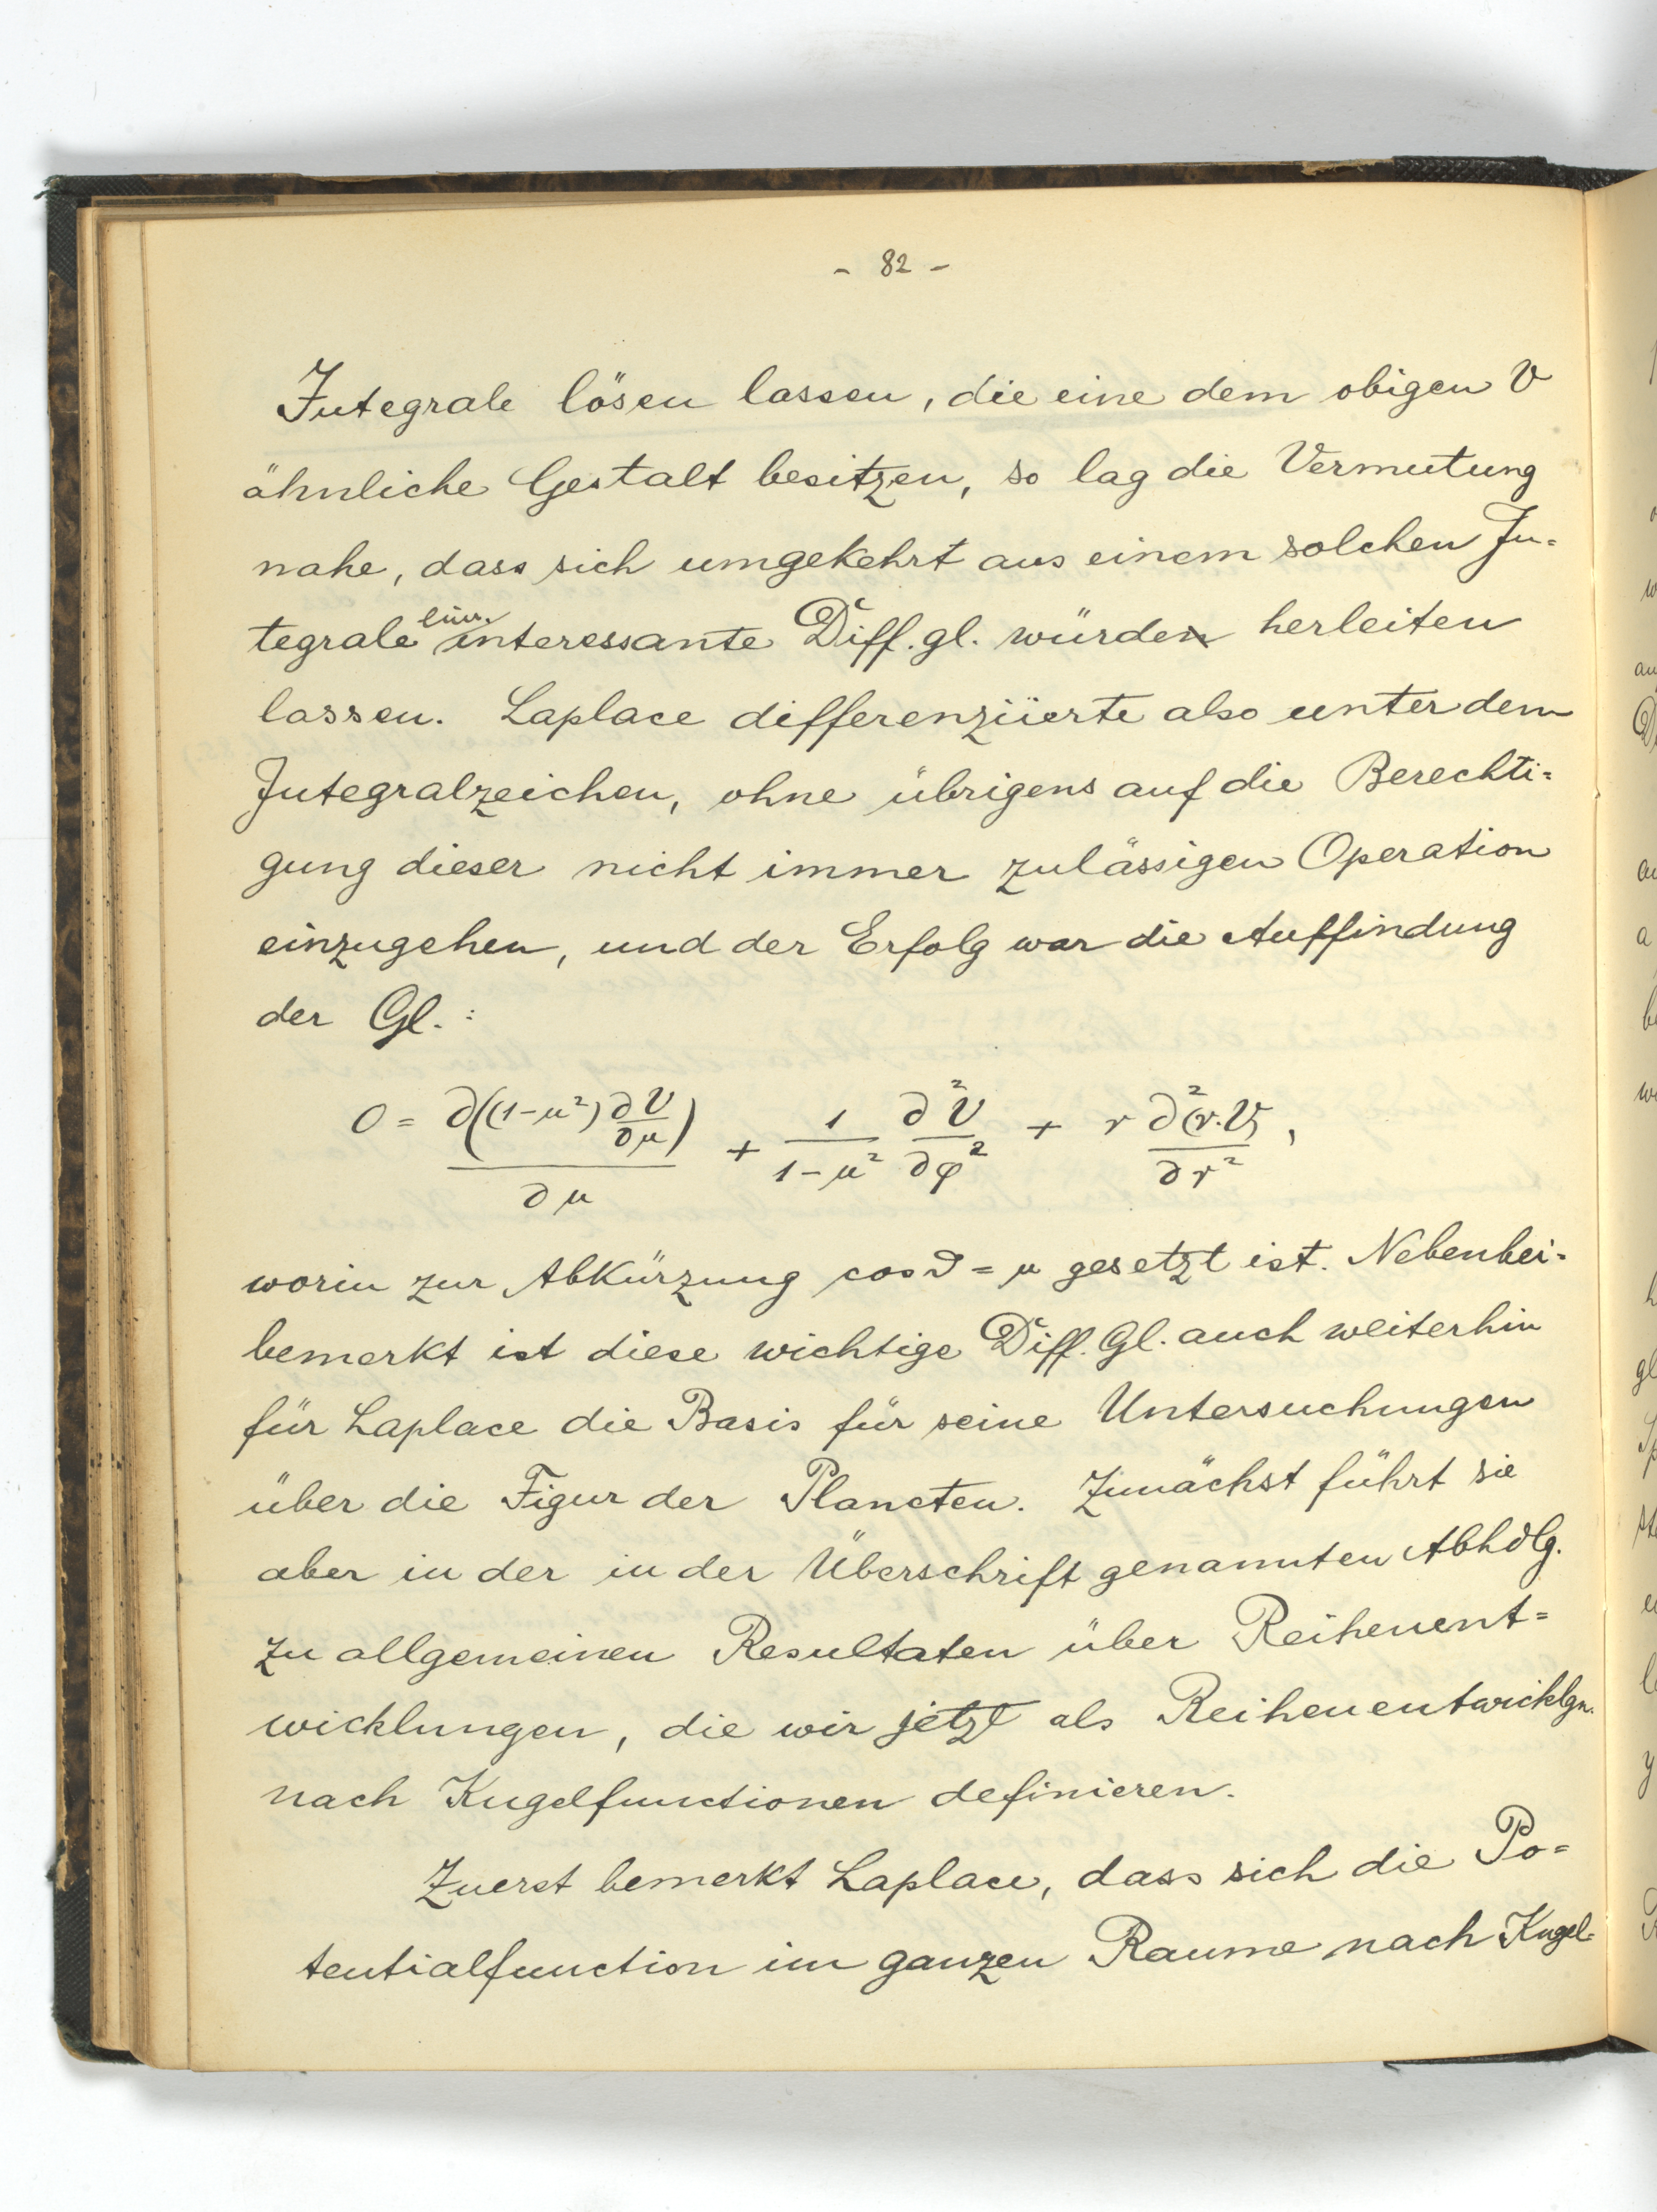 - 82 -
Integrale lösen lassen, die eine dem obigen V
ähnliche Gestalt besitzen, so lag die Vermutung
nahe, dass sich umgekehrt aus einem solchen In-
tegrale lin. interessante Diff. gl. würden herleiten
lassen. Laplace differenziierte also unter dem
Integralzeichen, ohne übrigens auf die Berechti-
gung dieser nicht immer zulässigen Operation
einzugehen, und der Erfolg war die Auffindung
der Gl.:
0 = ∂((1-μ²) ∂V/∂μ)/∂μ + 1/(1-μ²) ∂²V/∂φ² + r ∂²(r.V)/∂r²,
worin zur Abkürzung cos ϑ = μ gesetzt ist. Nebenbei-
bemerkt ist diese wichtige Diff. Gl. auch weiterhin
für Laplace die Basis für seine Untersuchungen
über die Figur der Planeten. Zunächst führt sie
aber in der in der Überschrift genannten Abhdlg.
zu allgemeinen Resultaten über Reihenent-
wicklungen, die wir jetzt als Reihenentwicklgn.
nach Kugelfunctionen definieren.
Zuerst bemerkt Laplace, dass sich die Po-
tentialfunction im ganzen Raume nach Kugel-